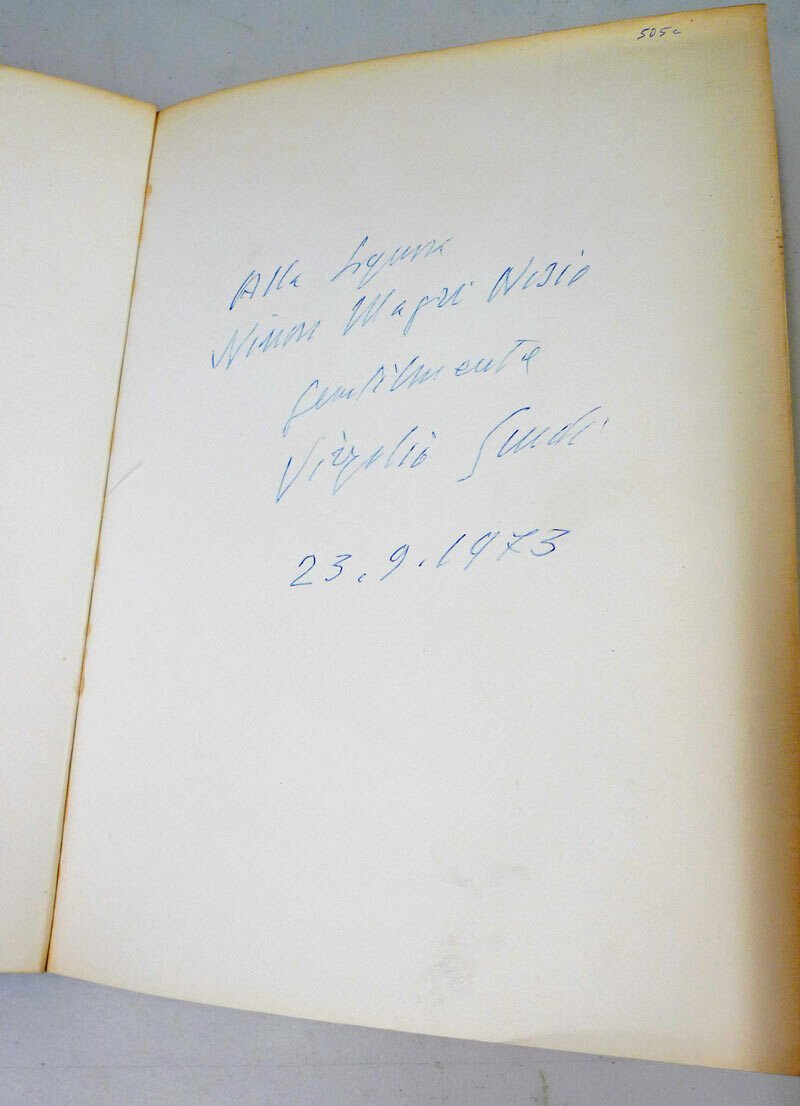 505c
Alla Signora
Ninon Magri Nisio
gentilmente
Virgilio Guidi
23.9.1973